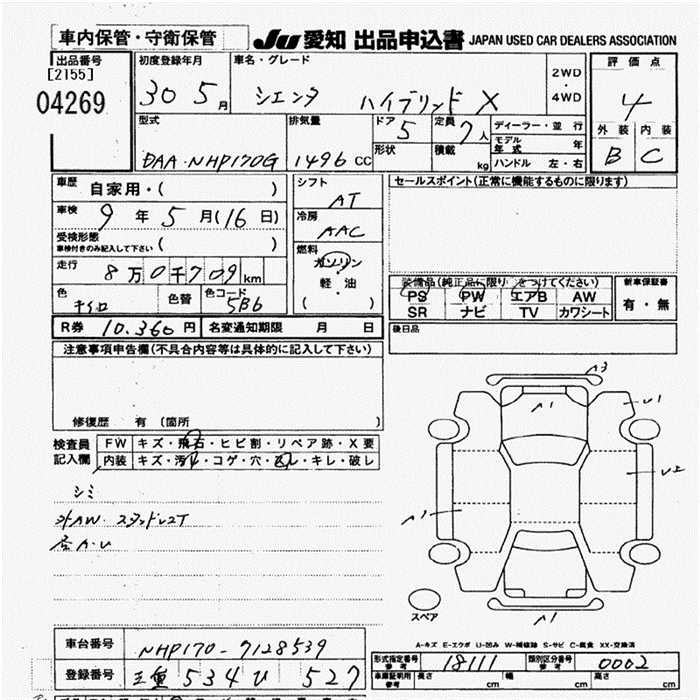 車内保管・守衛保管
JU 愛知 出品申込書 JAPAN USED CAR DEALERS ASSOCIATION
出品番号 初度登録年月 車名・グレード 2WD・4WD 評価点
[2155]
04269 30 5月 シエンタ ハイブリッド X 4
型式 排気量 ドア 5 定員 7人 ディーラー・並行 外装 内装
モデル年式 年
DAA-NHP170G 1496 CC 形状 積載 kg ハンドル 左・右 B C
車歴 自家用・( ) シフト セールスポイント(正常に機能するものに限ります)
AT
車検 9年 5月(16日) 冷房
AAC
受検形態 ( )
車検付きのみ記入して下さい
燃料
ガソリン
走行 8万0千709km 軽油
装備品(純正品に限り をつけてください) 新車保証書
色 キイロ 色替 色コード 5B6 ( )
PS PW エアB AW 有・無
SR ナビ TV カワシート
R券 10,360円 名変通知期限 月 日
後日品
注意事項申告欄(不具合内容等は具体的に記入して下さい)
修復歴 有(箇所 )
検査員記入欄
FW キズ・飛石・ヒビ割・リペア跡・X要
内装 キズ・汚れ・コゲ・穴・スレ・キレ・破レ
シミ
外AW スタッドレスT
A3
A1
U1
U2
A1
A1
スペア
A-キズ E-エクボ U-凹み W-補修跡 S-サビ C-腐食 XX-交換済
車台番号 NHP170-7128539
登録番号 三重 534 ひ 527
形式指定番号 参考 18111 類別区分番号 参考 0002
車庫証明用 参考 長さ cm 幅 cm 高さ cm